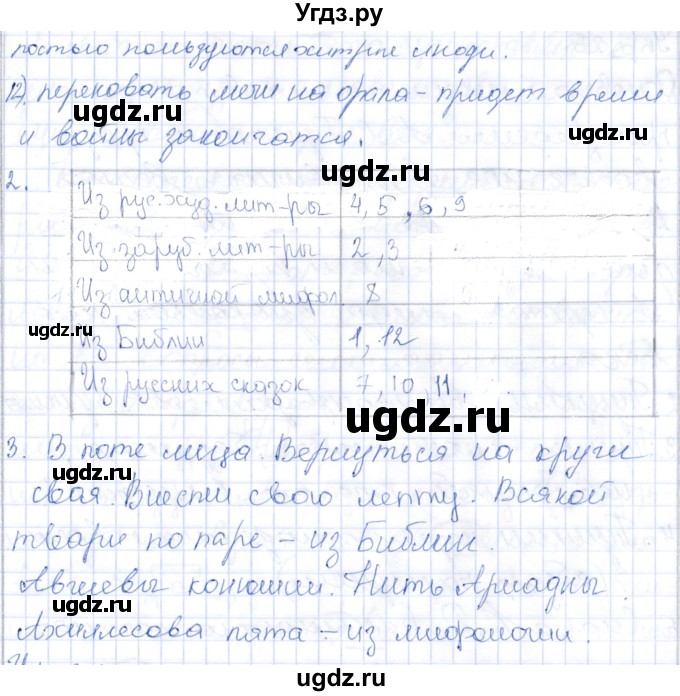 Угдз.ру
ростью пользуются хитрые люди.
12) перековать мечи на орала - придет время
и войны закончатся.
2.
Из рус. худ. лит-ры 4, 5, 6, 9
Из заруб. лит-ры 2, 3
Из античной мифол. 8
Из Библии 1, 12
Из русских сказок 7, 10, 11.
3. В поте лица. Вернуться на круги
своя. Внести свою лепту. Всякой
твари по паре - из Библии.
Авгиевы конюшни. Нить Ариадны.
Ахиллесова пята - из мифологии.
ugdz.ru
ugdz.ru
ugdz.ru
ugdz.ru
ugdz.ru
ugdz.ru
ugdz.ru
ugdz.ru
ugdz.ru